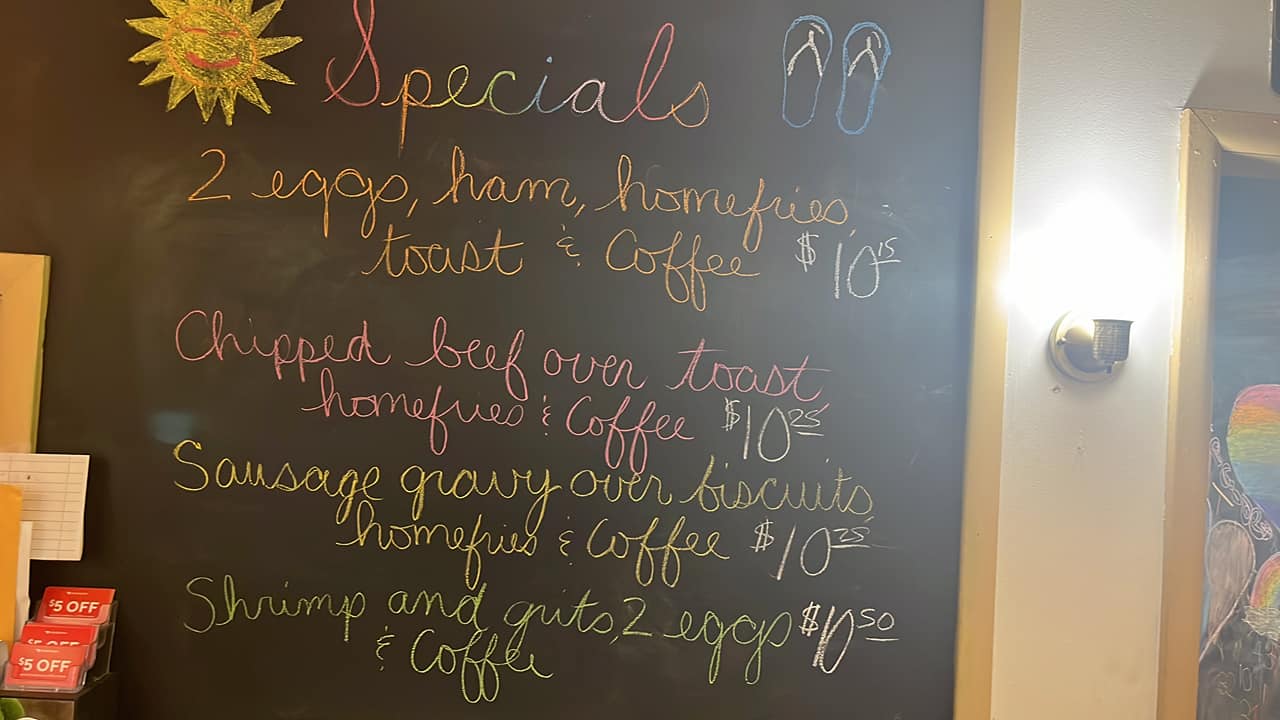 Specials
2 eggs, ham, homefries,
toast & Coffee $10 15
Chipped beef over toast,
homefries & Coffee $10 25
Sausage gravy over biscuits,
homefries & Coffee $10 25
Shrimp and grits, 2 eggs $10 50
& Coffee
$5 OFF
$5 OFF
$5 OFF